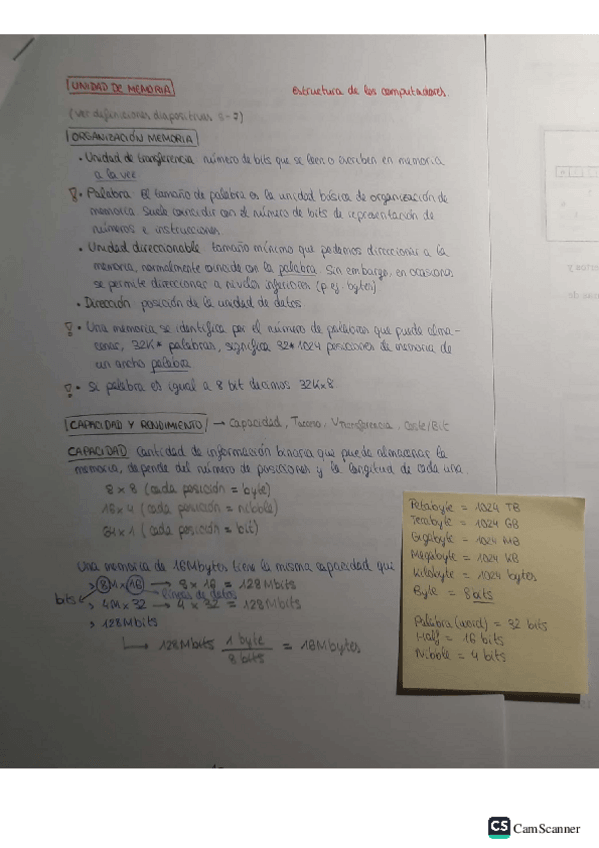 UNIDAD DE MEMORIA
estructura de los computadores.
(ver definiciones diapositivas 5-7)
ORGANIZACIÓN MEMORIA
• Unidad de transferencia: número de bits que se leen o escriben en memoria
a la vez
• Palabra: El tamaño de palabra es la unidad básica de organización de
memoria. Suele coincidir con el número de bits de representación de
números e instrucciones.
• Unidad direccionable: tamaño mínimo que podemos direccionar a la
memoria, normalmente coincide con la palabra. Sin embargo, en ocasiones
se permite direccionar a niveles inferiores (p.ej. bytes)
• Dirección: posición de la unidad de datos.
• Una memoria se identifica por el número de palabras que puede alma-
cenar, 32K* palabras, significa 32*1024 posiciones de memoria de
un ancho palabra
• Si palabra es igual a 8 bit decimos 32K×8.
CAPACIDAD Y RENDIMIENTO → Capacidad, Tacceso, Vtransferencia, Coste/Bit
CAPACIDAD: Cantidad de información binaria que puede almacenar la
memoria, depende del número de posiciones y la longitud de cada una.
8 × 8 (cada posición = byte)
16 × 4 (cada posición = nibble)
64 × 1 (cada posición = bit)
Una memoria de 16Mbytes tiene la misma capacidad que
8M×16 → 8 × 16 = 128Mbits
bits
líneas de datos
4M × 32 → 4 × 32 = 128Mbits
128Mbits
128Mbits 1 byte / 8 bits = 16Mbytes
Petabyte = 1024 TB
Terabyte = 1024 GB
Gigabyte = 1024 MB
Megabyte = 1024 KB
Kilobyte = 1024 bytes
Byte = 8 bits
Palabra (word) = 32 bits
Half = 16 bits
Nibble = 4 bits
CS CamScanner